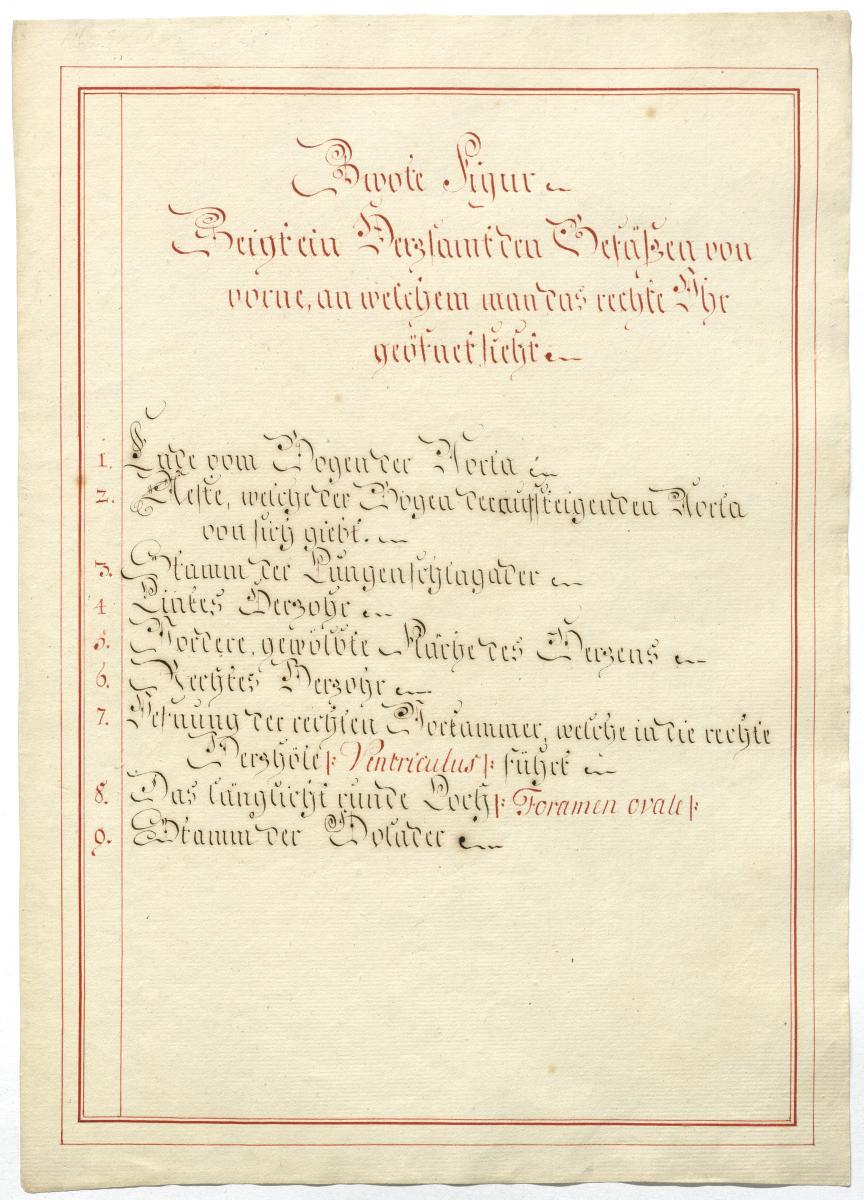 Zwote Figur
Zeigt ein Herz samt den Gefäßen von
vorne, an welchem man das rechte Ohr
geöfnet sieht
1. Ende vom Bogen der Aorta
2. Aeste, welche der Bogen der aufsteigenden Aorta
von sich giebt.
3. Stamm der Lungenschlagader
4 Linkes Herzohr
5. Vordere, gewölbte Fläche des Herzens
6. Rechtes Herzohr
7. Oefnung der rechten Vorkammer, welche in die rechte
Herzhöle |: Ventriculus :| führt
8. Das länglicht runde Loch |: Foramen ovale :|
9. Stamm der Holader